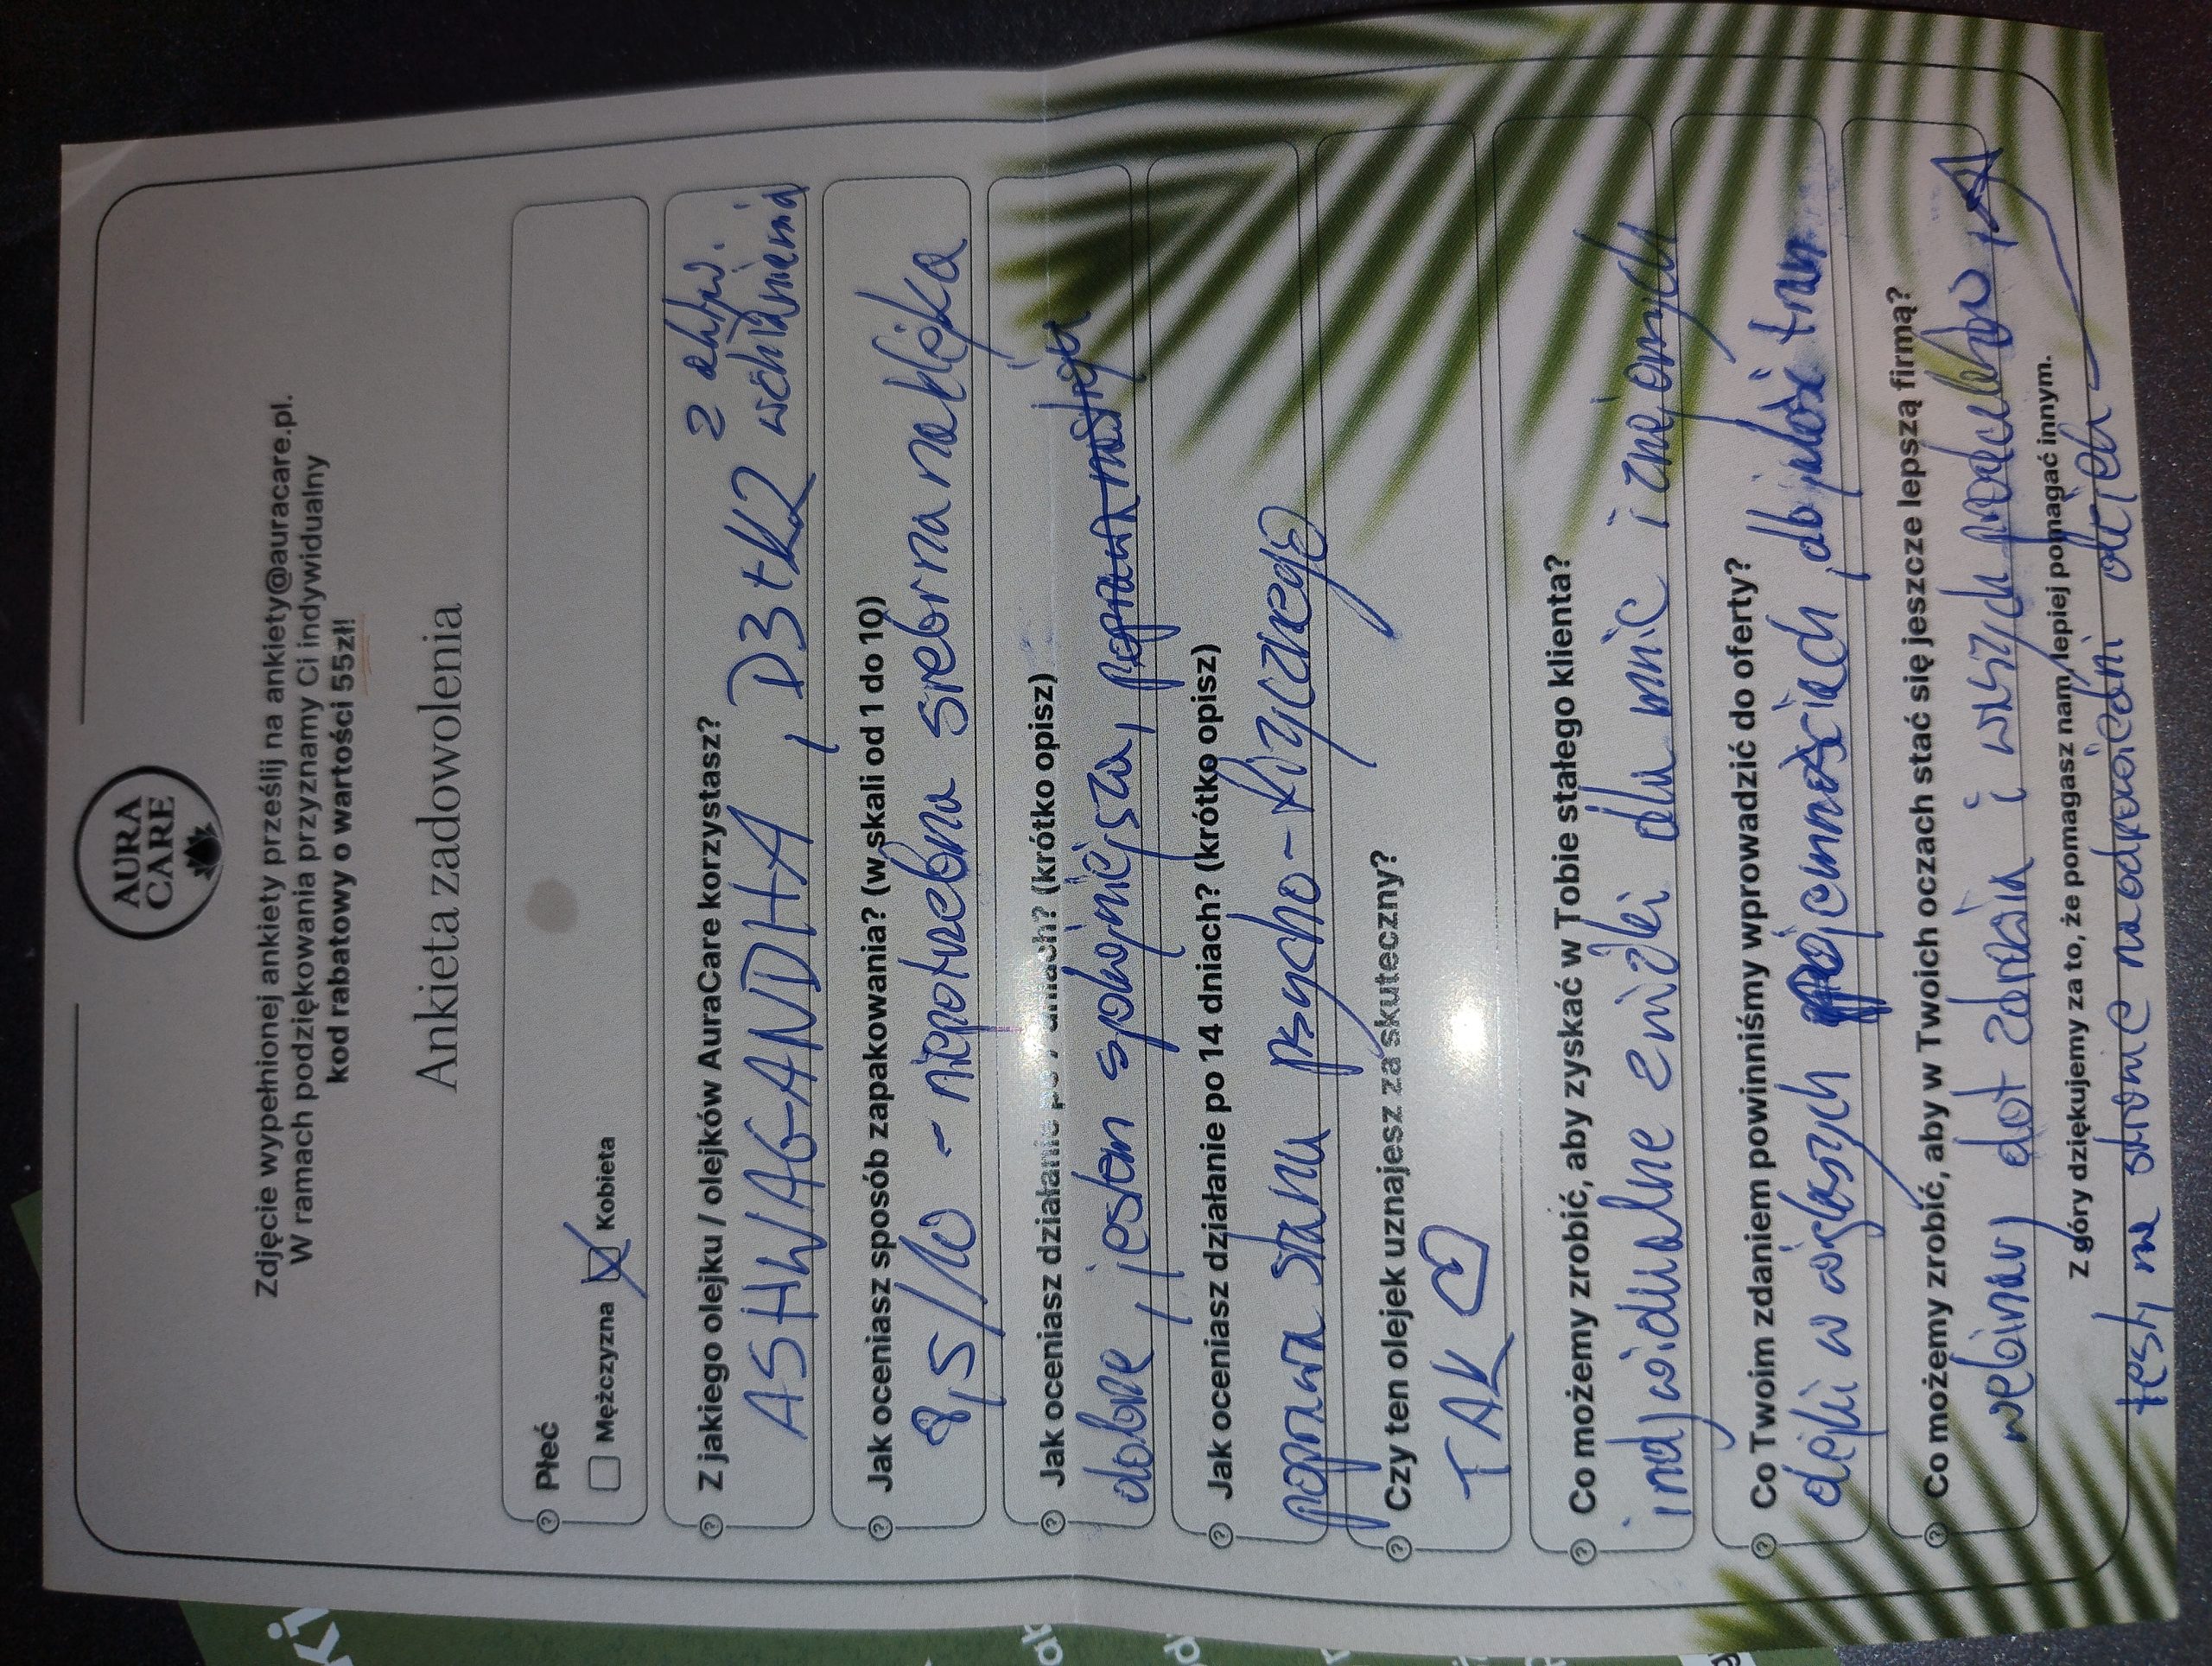 AURA
CARE
Zdjęcie wypełnionej ankiety prześlij na ankiety@auracare.pl.
W ramach podziękowania przyznamy Ci indywidualny
kod rabatowy o wartości 55zł!
Ankieta zadowolenia
Płeć
Mężczyzna Kobieta
Z jakiego olejku / olejków AuraCare korzystasz?
ASHWAGANDHA, D3+K2 z
Jak oceniasz sposób zapakowania? (w skali od 1 do 10)
8,5/10 - niepotrzebna srebrna naklejka
Jak oceniasz działanie po 7 dniach? (krótko opisz)
dobrze, jestem spokojniejsza, poprawa nastroju
Jak oceniasz działanie po 14 dniach? (krótko opisz)
poprawa stanu psycho-fizycznego
Czy ten olejek uznajesz za skuteczny?
TAK
Co możemy zrobić, aby zyskać w Tobie stałego klienta?
indywidualne zniżki dla mnie i znajomych
Co Twoim zdaniem powinniśmy wprowadzić do oferty?
olejki w większych pojemnościach, db jakość tran
Co możemy zrobić, aby w Twoich oczach stać się jeszcze lepszą firmą?
webinary dot zdrowia i waszych produktów
Z góry dziękujemy za to, że pomagasz nam lepiej pomagać innym.
testy na stronie na odpowiedni olejek